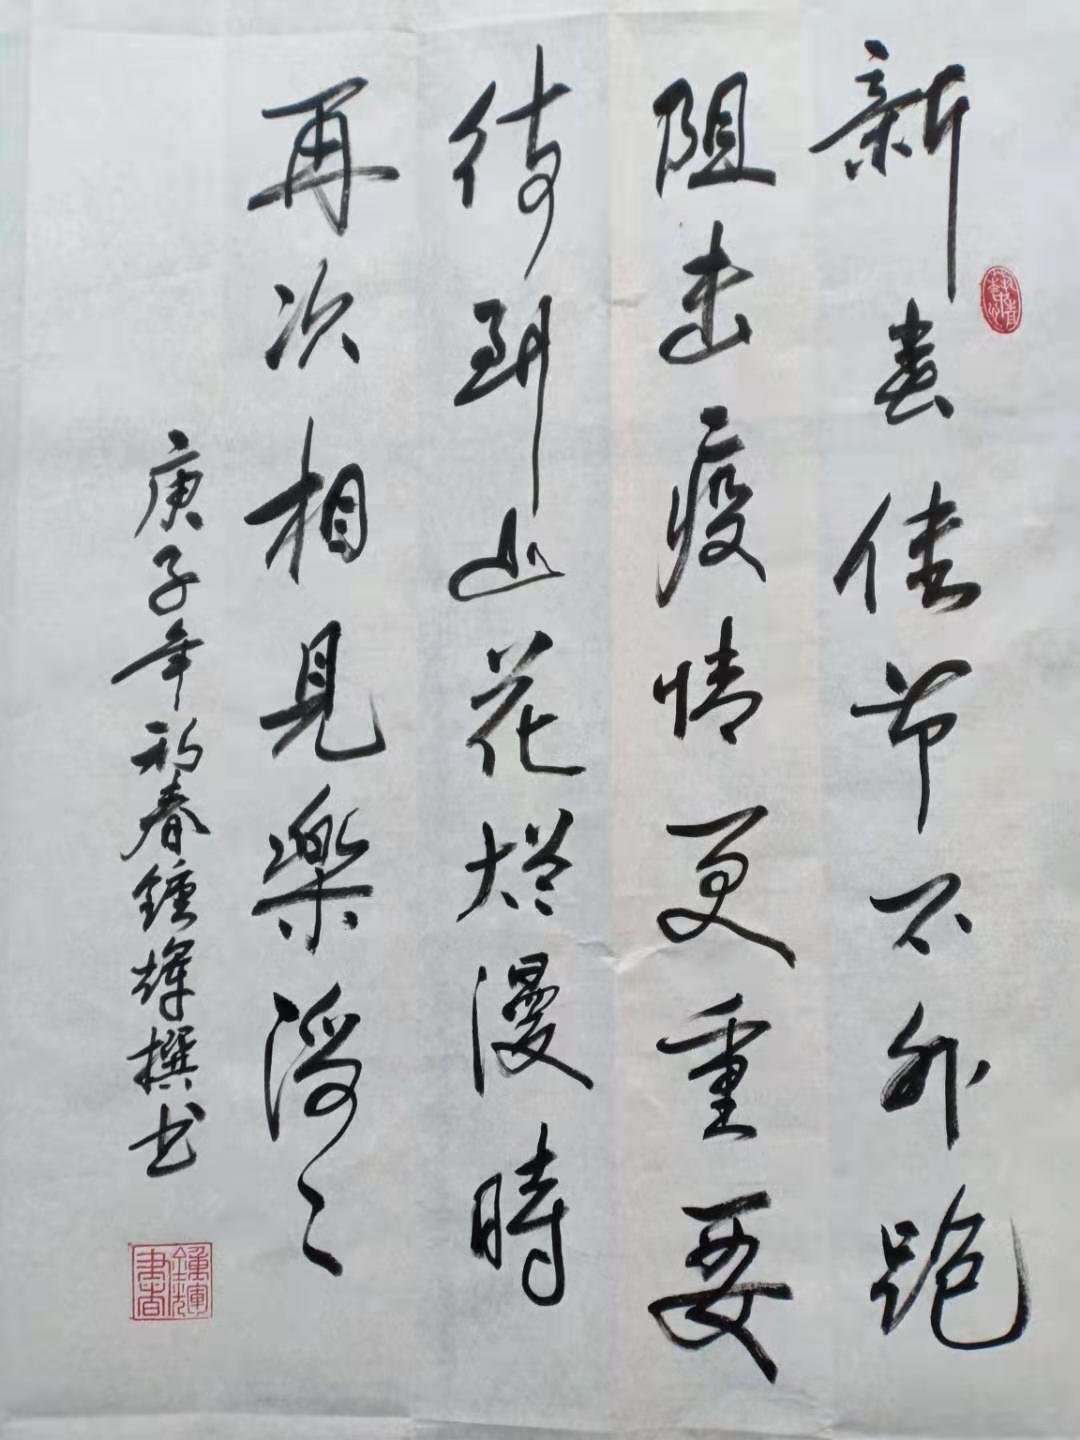 新春佳节不外跑
阻击疫情更重要
待到山花烂漫時
再次相見樂滔々
庚子年初春鍾輝撰书